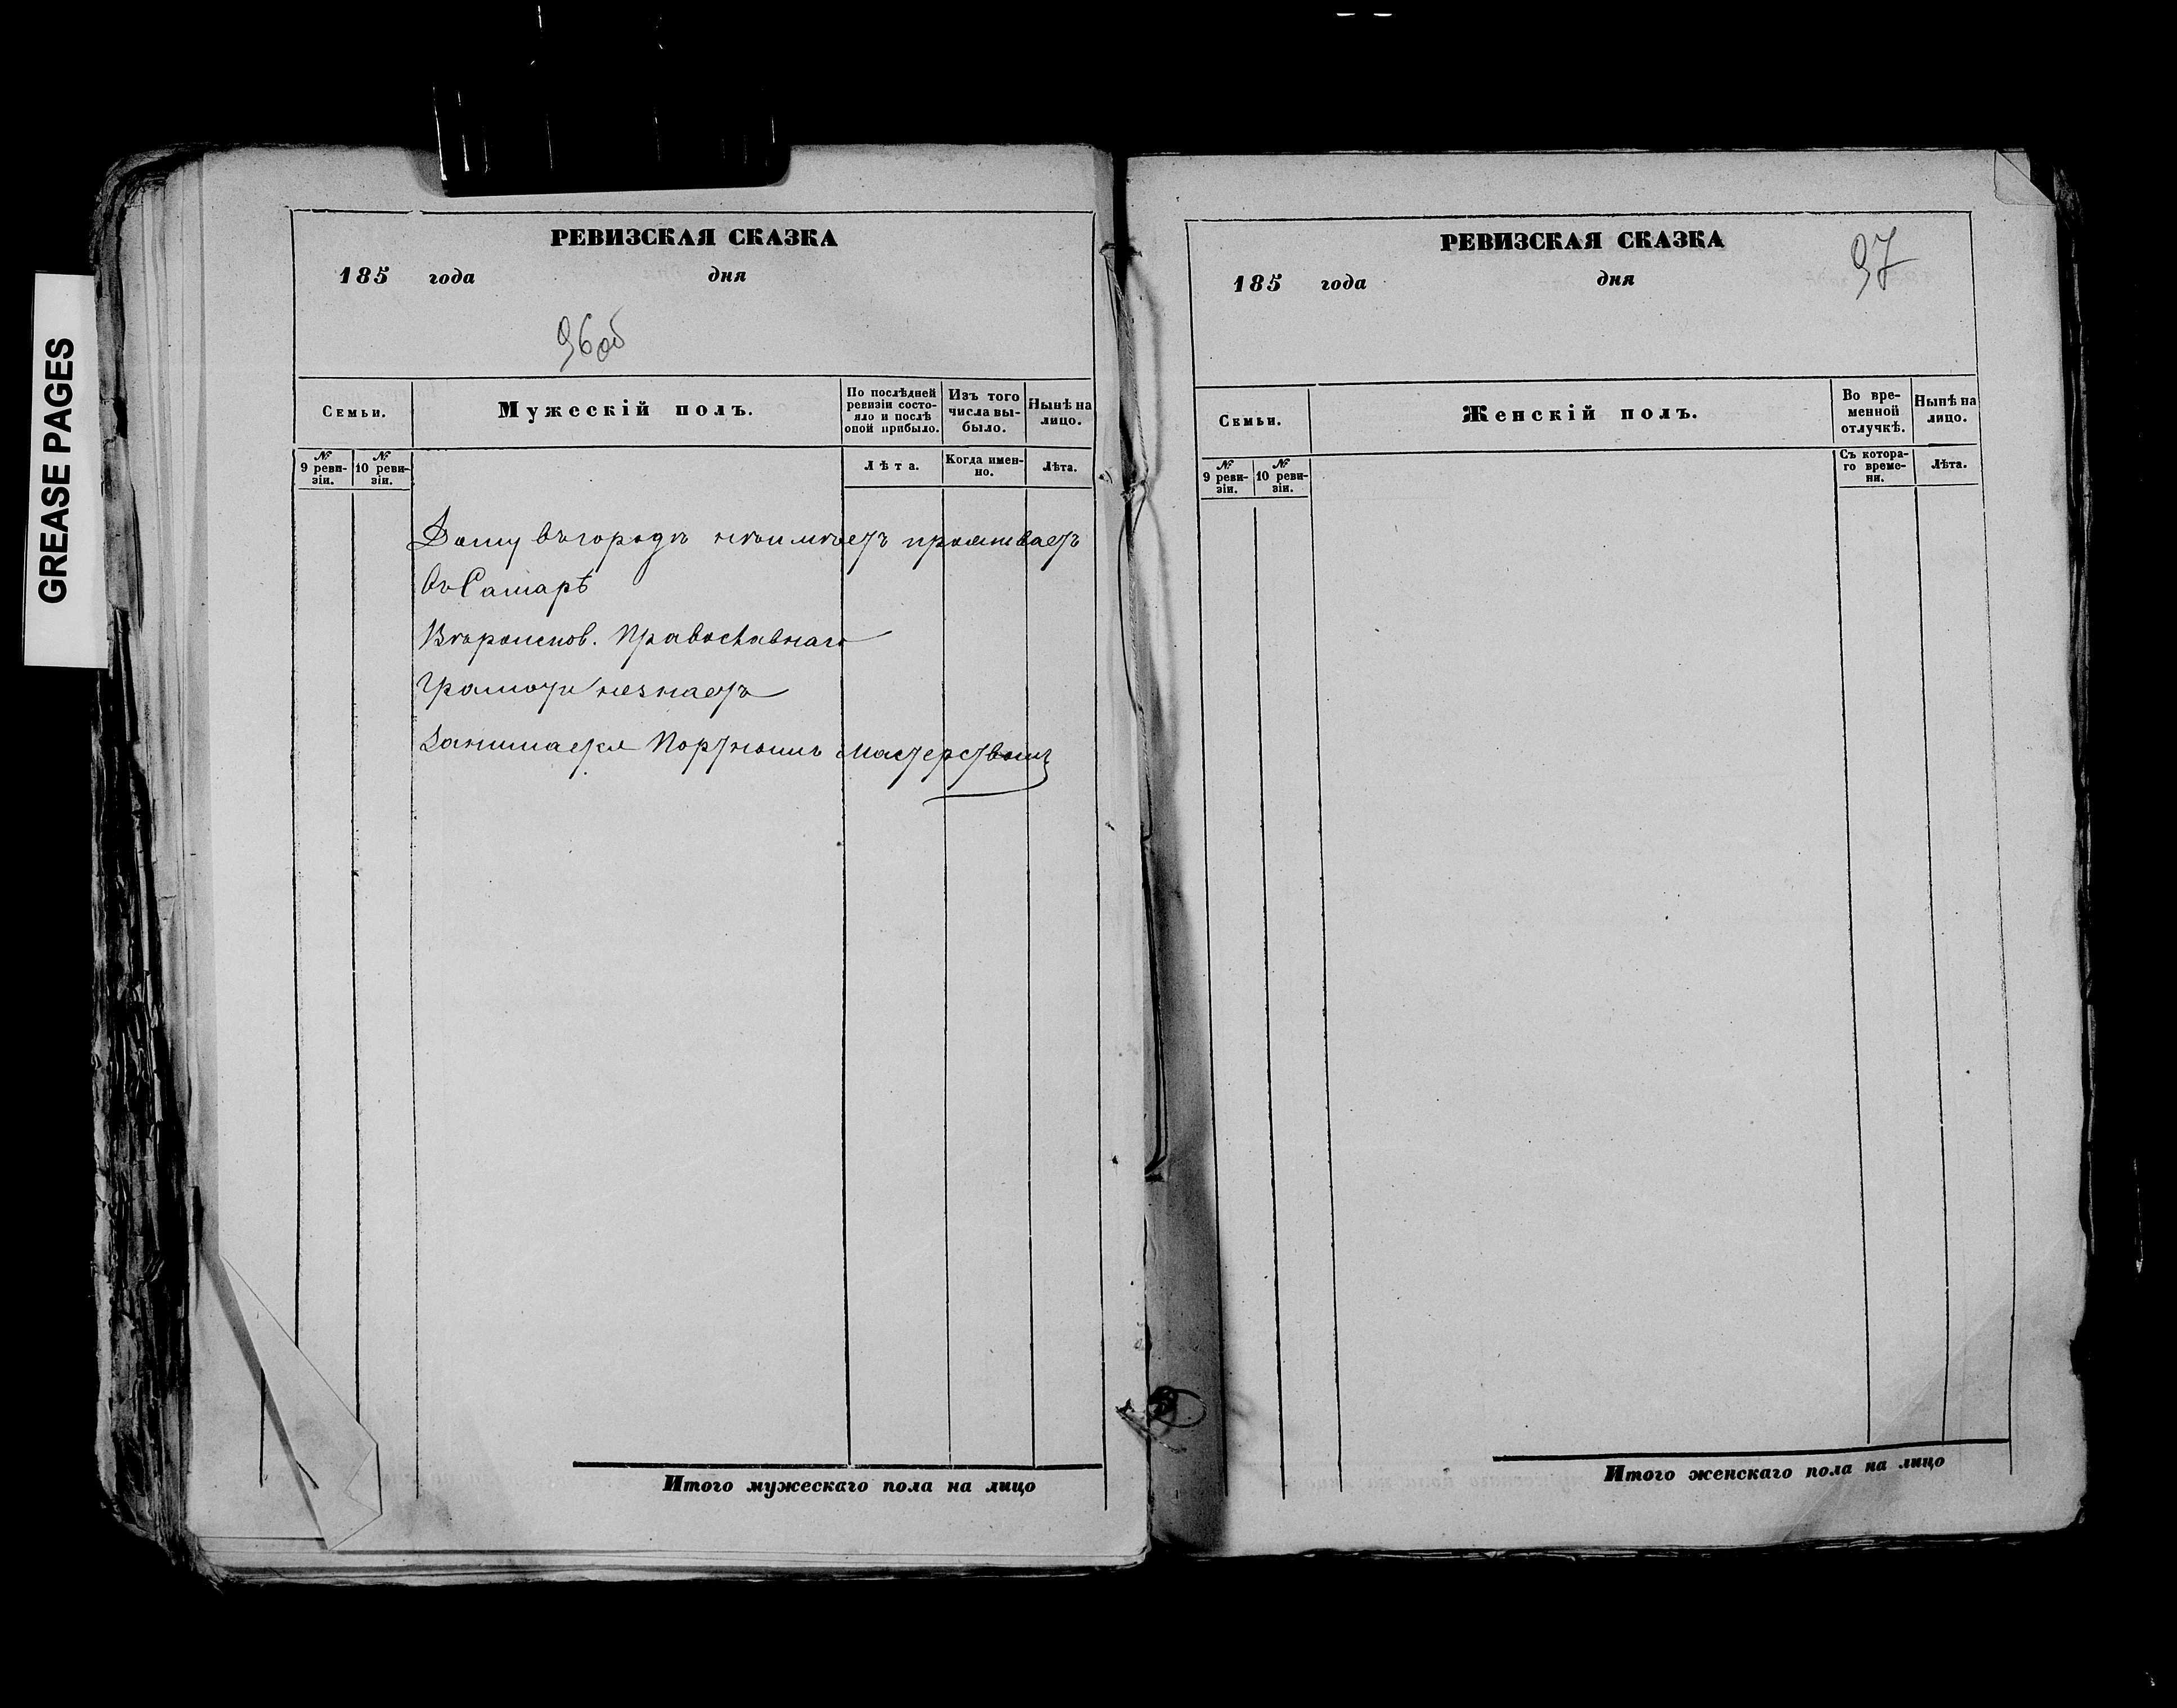 GREASE PAGES
РЕВИЗСКАЯ СКАЗКА
185 года дня
96об
Семьи.
Мужескій полъ.
По послѣдней ревизіи состояло и послѣ оной прибыло.
Изъ того числа выбыло.
Нынѣ на лицо.
№ 9 ревизіи.
№ 10 ревизіи.
Лѣта.
Когда именно.
Лѣта.
Дому въ городѣ неимѣетъ проживаетъ
въ Самарѣ
Вѣроиспов. Православнаго
Грамоты незнаетъ
Занимается Портнымъ мастерствомъ
Итого мужескаго пола на лицо
РЕВИЗСКАЯ СКАЗКА
97
185 года дня
Семьи.
Женскій полъ.
Во временной отлучкѣ.
Нынѣ на лицо.
№ 9 ревизіи.
№ 10 ревизіи.
Съ котораго времени.
Лѣта.
Итого женскаго пола на лицо